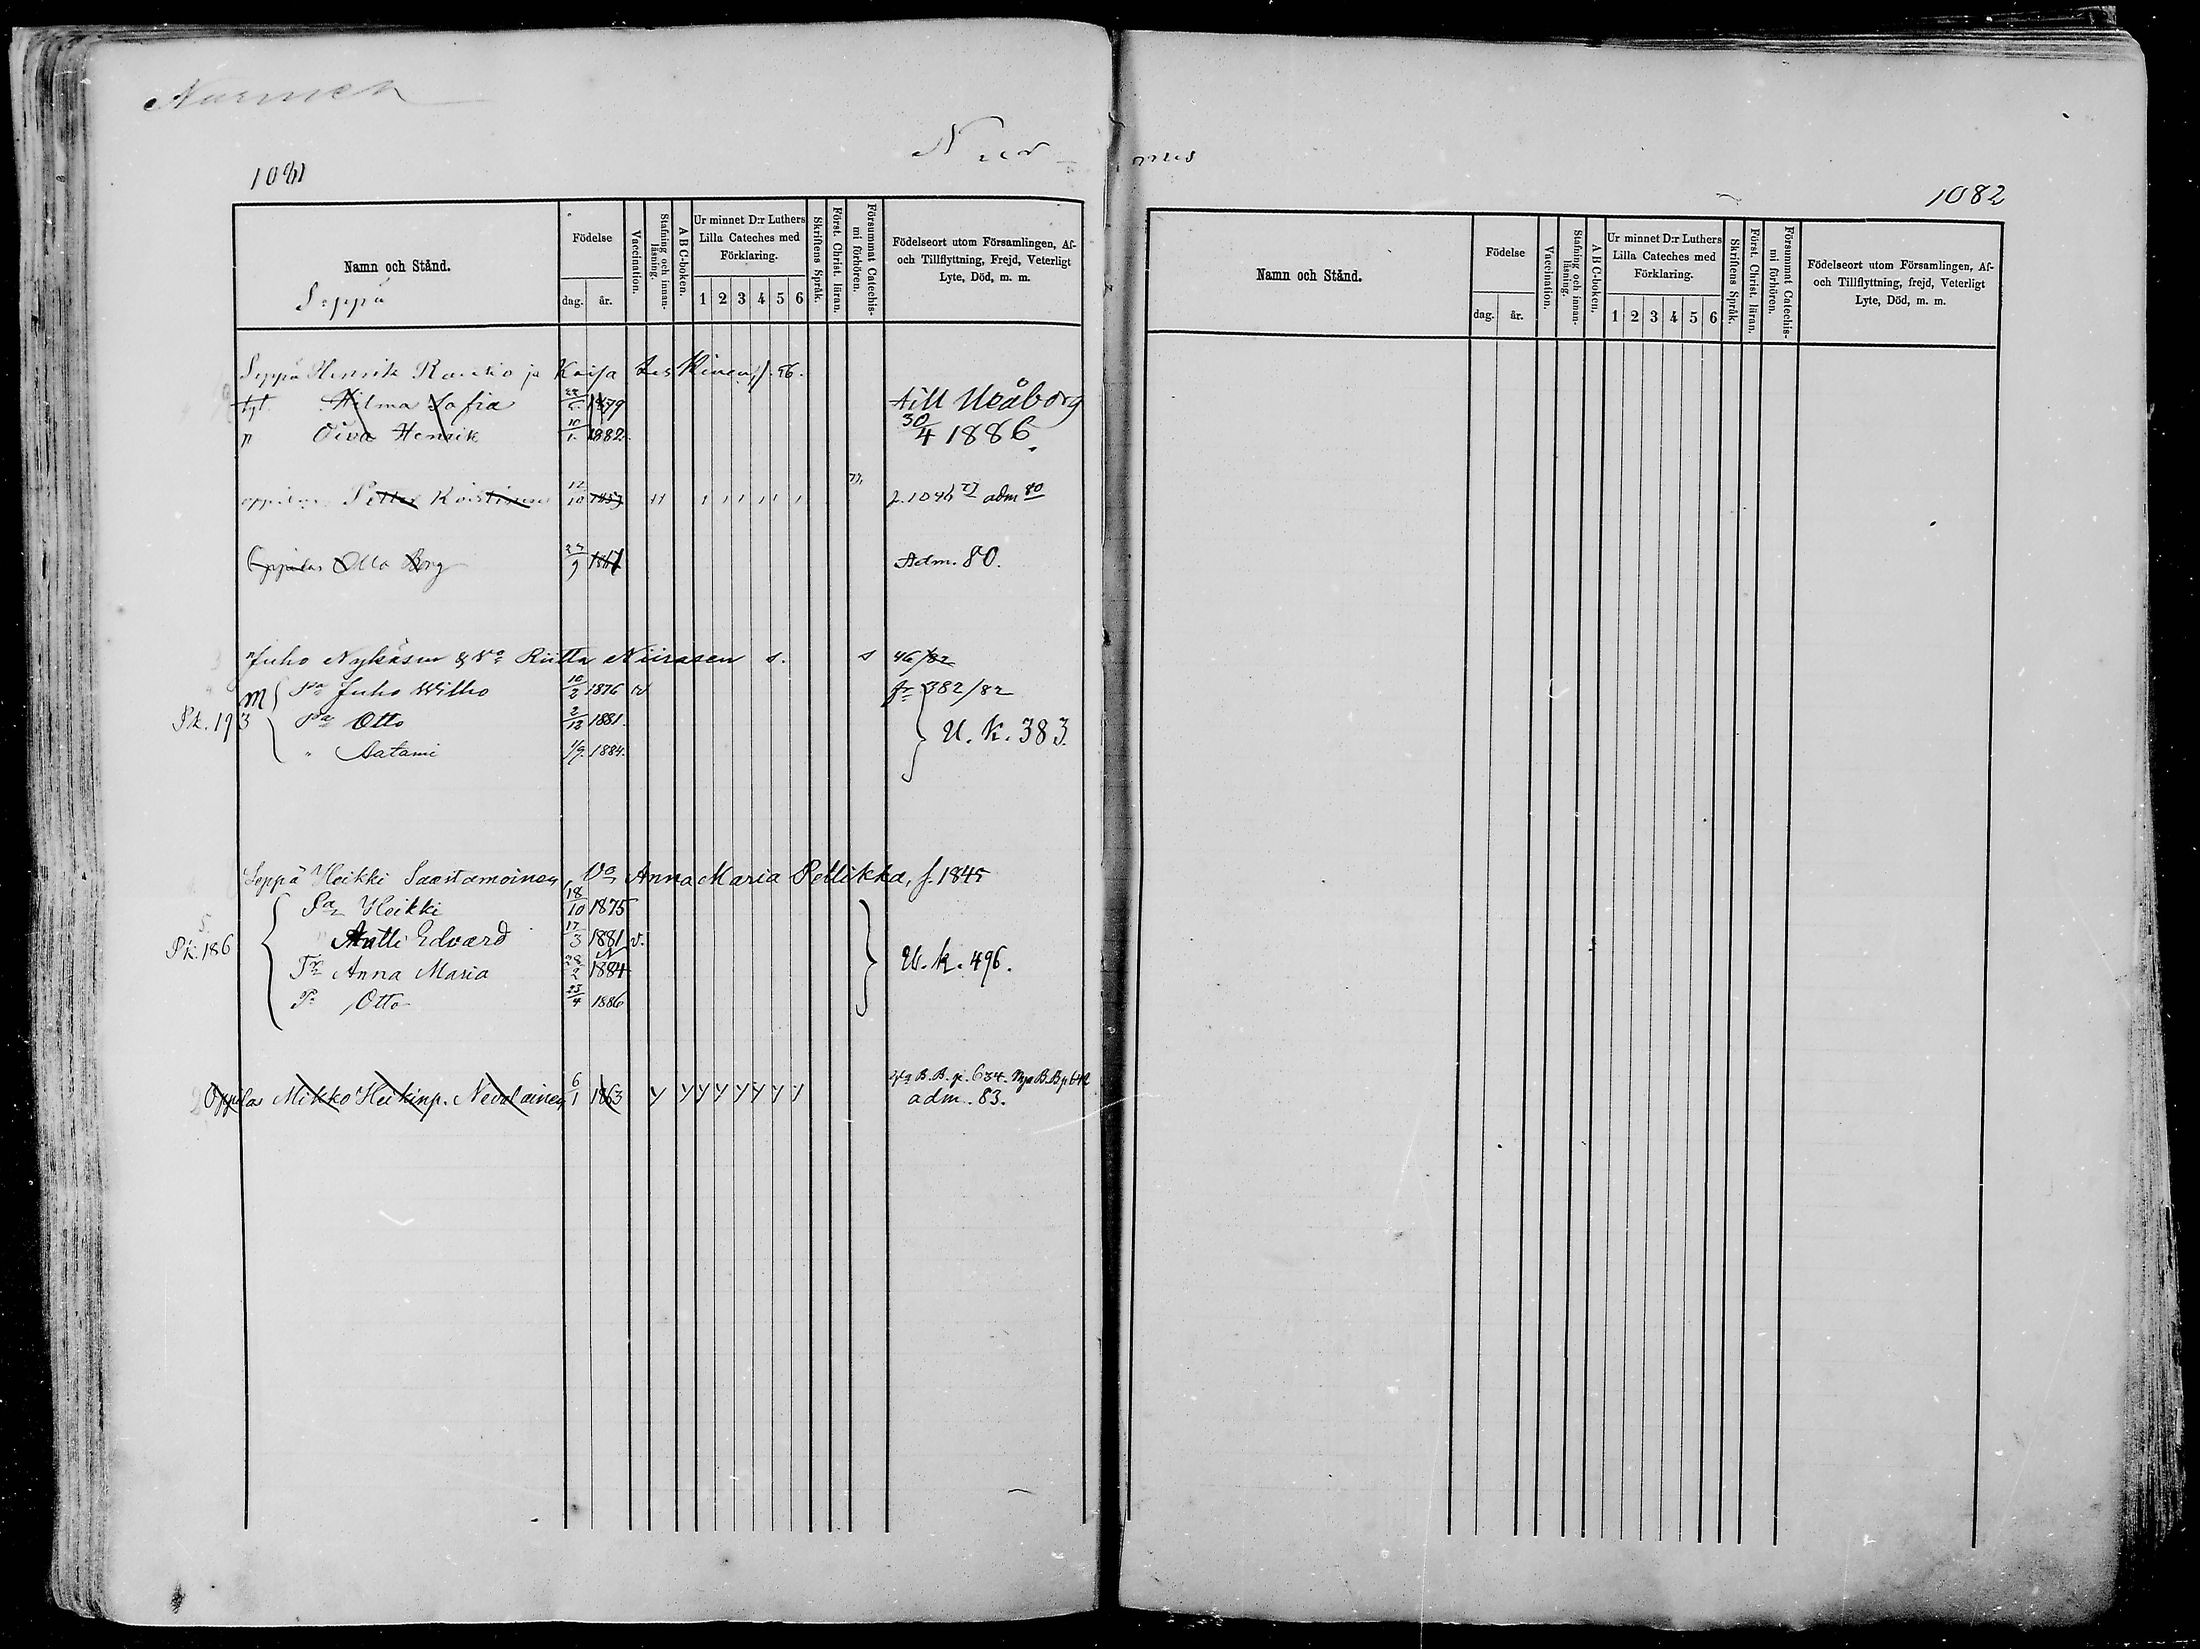 Nurmes
Nur- mes
1081
1082
Namn och Stånd.
Seppä
Födelse
dag. år.
Vaccination.
Stafning och innanläsning.
A B C-boken.
Ur minnet D:r Luthers Lilla Cateches med Förklaring.
1 2 3 4 5 6
Skriftens Språk.
Först. Christ. läran.
Försummat Catechismi förhören.
Födelseort utom Församlingen, Af- och Tillflyttning, Frejd, Veterligt Lyte, Död, m. m.
Seppä Henrik Rautio ja Kaisa f. 56.
tyt. Hilma Sofia 1879 till Uleåborg
" Oiva Henrik 10/1 1882. 30/4 1886.
oppilas Petter Koistinen 12/10 1857 p. 1046 adm 80
Oppilas Otto Borg 27/9 Adm. 80.
Juho Nykäsen & Va Riitta Niirasen s. s 46/82
m Pa Juho Wilho 10/2 1876 v fr 382/82
Pk. 193 Pa Otto 2/12 1881. U. k. 383.
" Aatami 1/9. 1884.
Seppä Heikki Saastamoinen, Va Anna Maria Pellikka, f. 1845
Pa Heikki 18/10 1875
5.
Pk. 186 " Antti Edvard 17/3 1881 v.
Tr Anna Maria 28/2 1884 N U. k. 496.
P. Otto 23/4 1886
Oppilas Mikko Heikinp. Nevalainen 6/1 1863 y y y y y y y y B. B. p. 634. Nya B. B. p 642
adm. 83.
Namn och Stånd.
Födelse
dag. år.
Vaccination.
Stafning och innanläsning.
A B C-boken.
Ur minnet D:r Luthers Lilla Cateches med Förklaring.
1 2 3 4 5 6
Skriftens Språk.
Först. Christ. läran.
Försummat Catechismi förhören.
Födelseort utom Församlingen, Af- och Tillflyttning, frejd, Veterligt Lyte, Död, m. m.